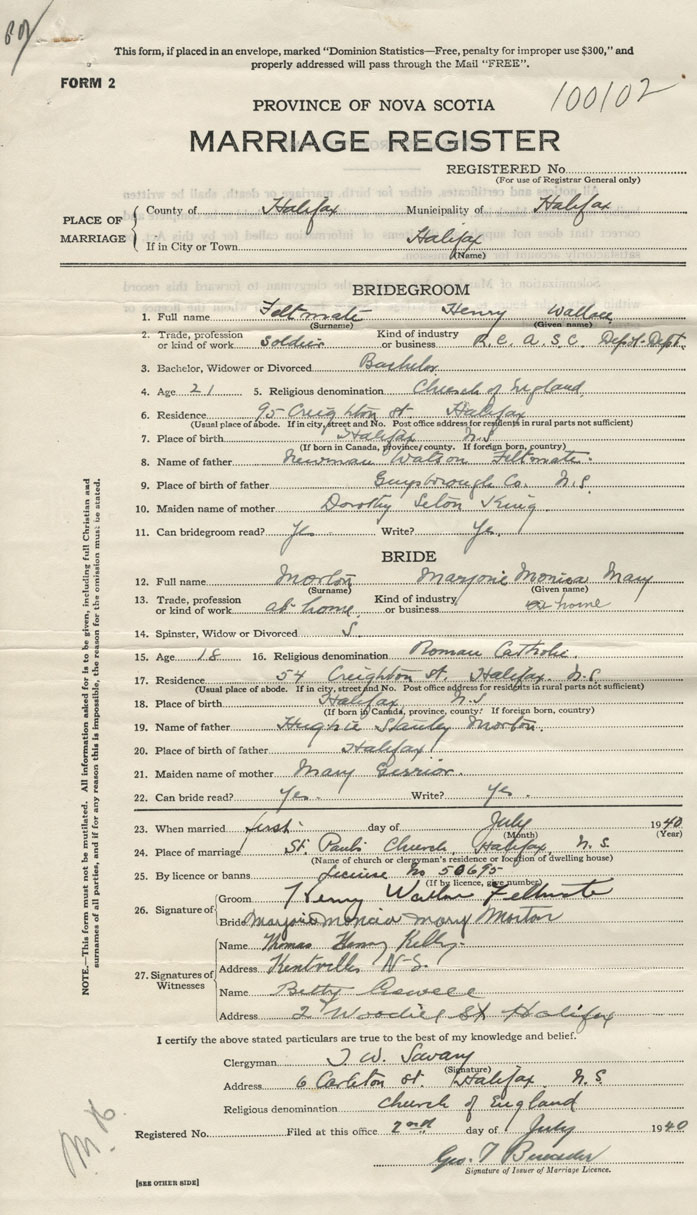 This form, if placed in an envelope, marked "Dominion Statistics—Free, penalty for improper use $300," and
properly addressed will pass through the Mail "FREE".
FORM 2
100102
PROVINCE OF NOVA SCOTIA
MARRIAGE REGISTER
REGISTERED No.
(For use of Registrar General only)
PLACE OF MARRIAGE
County of Halifax Municipality of Halifax
If in City or Town Halifax
(Name)
BRIDEGROOM
1. Full name Feltmate Henry Wallace
(Surname) (Given name)
2. Trade, profession or kind of work Soldier Kind of industry or business R.C.A.S.C. Depot. Dept.
3. Bachelor, Widower or Divorced Bachelor
4. Age 21 5. Religious denomination Church of England
6. Residence 95 Creighton St Halifax
(Usual place of abode. If in city, street and No. Post office address for residents in rural parts not sufficient)
7. Place of birth Halifax N.S
(If born in Canada, province/county. If foreign born, country)
8. Name of father Newman Watson Feltmate
9. Place of birth of father Guysborough Co. N.S.
10. Maiden name of mother Dorothy Seton King
11. Can bridegroom read? Yes Write? Yes
BRIDE
12. Full name Morton Marjorie Monica Mary
(Surname) (Given name)
13. Trade, profession or kind of work at home Kind of industry or business at home
14. Spinster, Widow or Divorced S.
15. Age 18 16. Religious denomination Roman Catholic
17. Residence 54 Creighton St. Halifax. N.S.
(Usual place of abode. If in city, street and No. Post office address for residents in rural parts not sufficient)
18. Place of birth Halifax N.S
(If born in Canada, province, county. If foreign born, country)
19. Name of father Hughie Stanley Morton.
20. Place of birth of father Halifax
21. Maiden name of mother Mary Gerrior.
22. Can bride read? Yes. Write? Yes.
23. When married first day of July 1940
(Month) (Year)
24. Place of marriage St. Paul's Church, Halifax, N.S.
(Name of church or clergyman's residence or location of dwelling house)
25. By licence or banns License No 50695
(If by licence, give number)
26. Signature of
Groom Henry Wallace Feltmate
Bride Marjorie Monica Mary Morton
27. Signatures of Witnesses
Name Thomas Henry Kelly.
Address Kentville N.S.
Name Betty
Address 2 St Halifax
I certify the above stated particulars are true to the best of my knowledge and belief.
Clergyman T. W. Savary
(Signature)
Address 6 Carleton St. Halifax, N.S.
Religious denomination Church of England
Registered No. Filed at this office 2nd day of July 1940
Geo. T
Signature of Issuer of Marriage Licence.
[SEE OTHER SIDE]
NOTE.—This form must not be mutilated. All information asked for is to be given, including full Christian and
surnames of all parties, and if for any reason this is impossible, the reason for the omission must be stated.